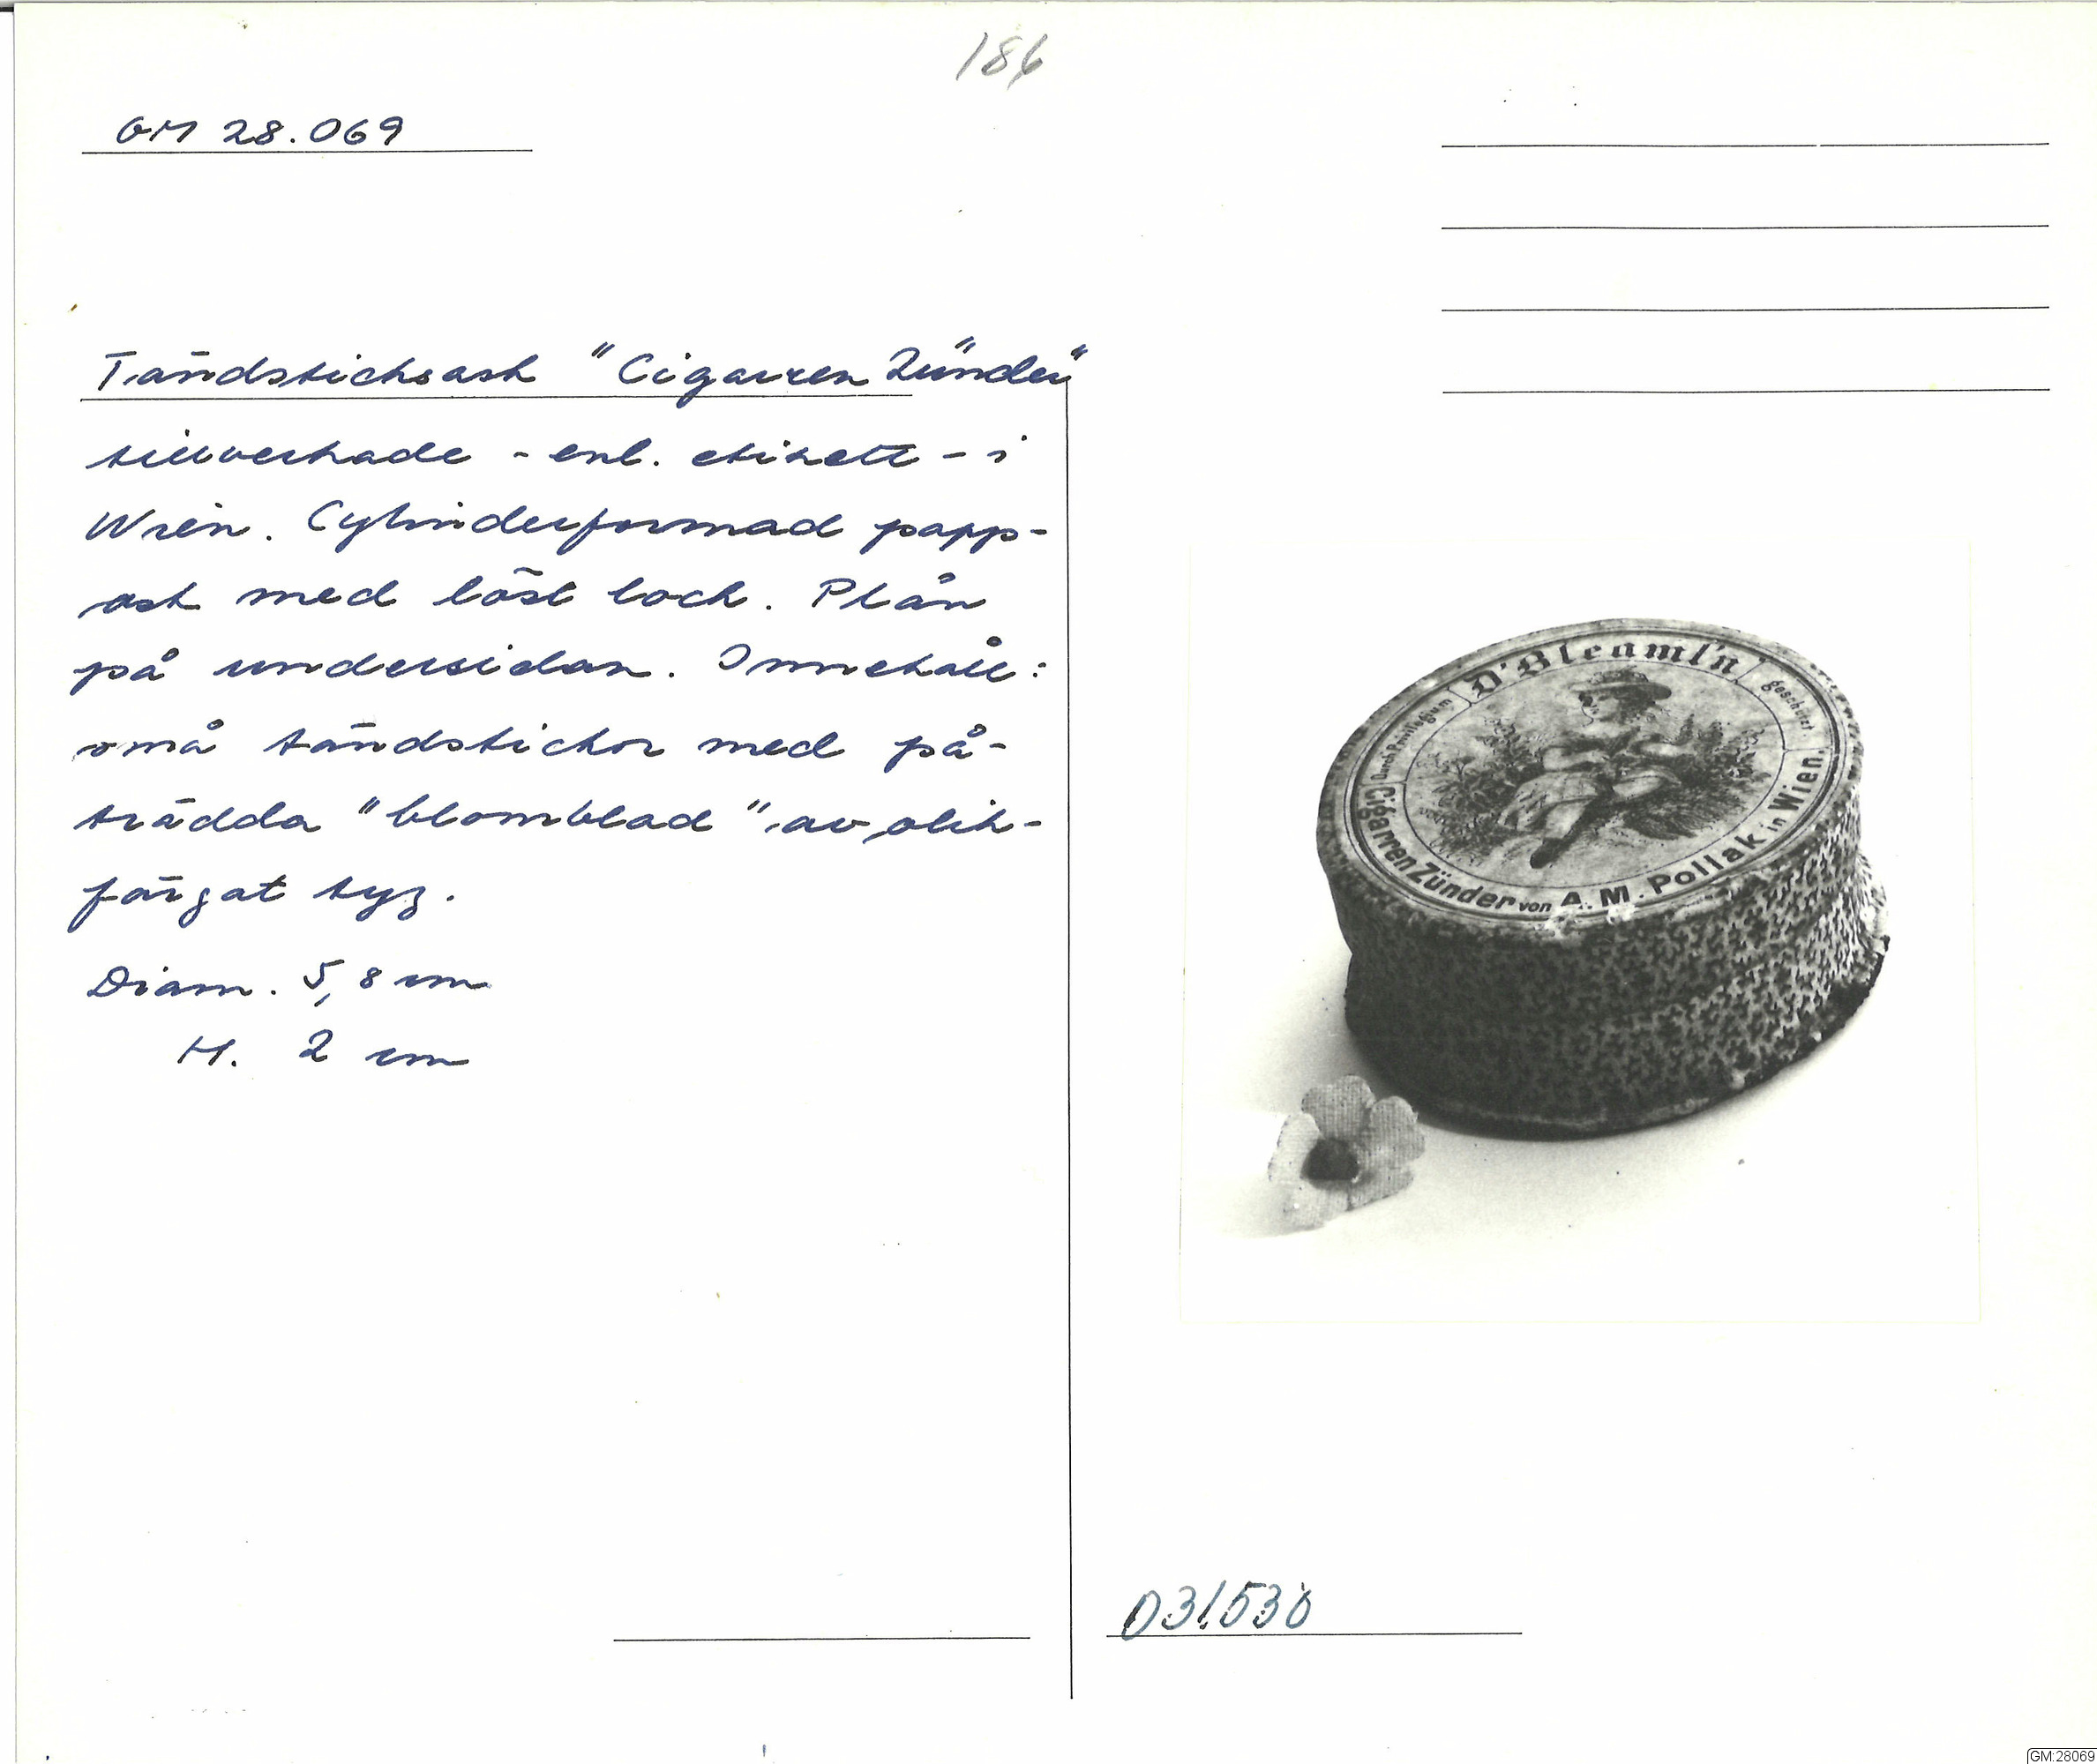 186
GM 28.069
Tändsticksask "Cigarren Zünder"
tillverkade - enl. etikett - i
Wien. Cylinderformad papp-
ask med löst lock. Plån
på undersidan. Innehåll:
små tändstickor med på-
trädda "blomblad" av olik-
färgat tyg.
Diam. 5,8 cm
H. 2 cm
D'Bleaml'n
Durch Privilegium
geschützt
Cigarren Zünder von A. M. Pollak in Wien.
D31.530
GM:28069